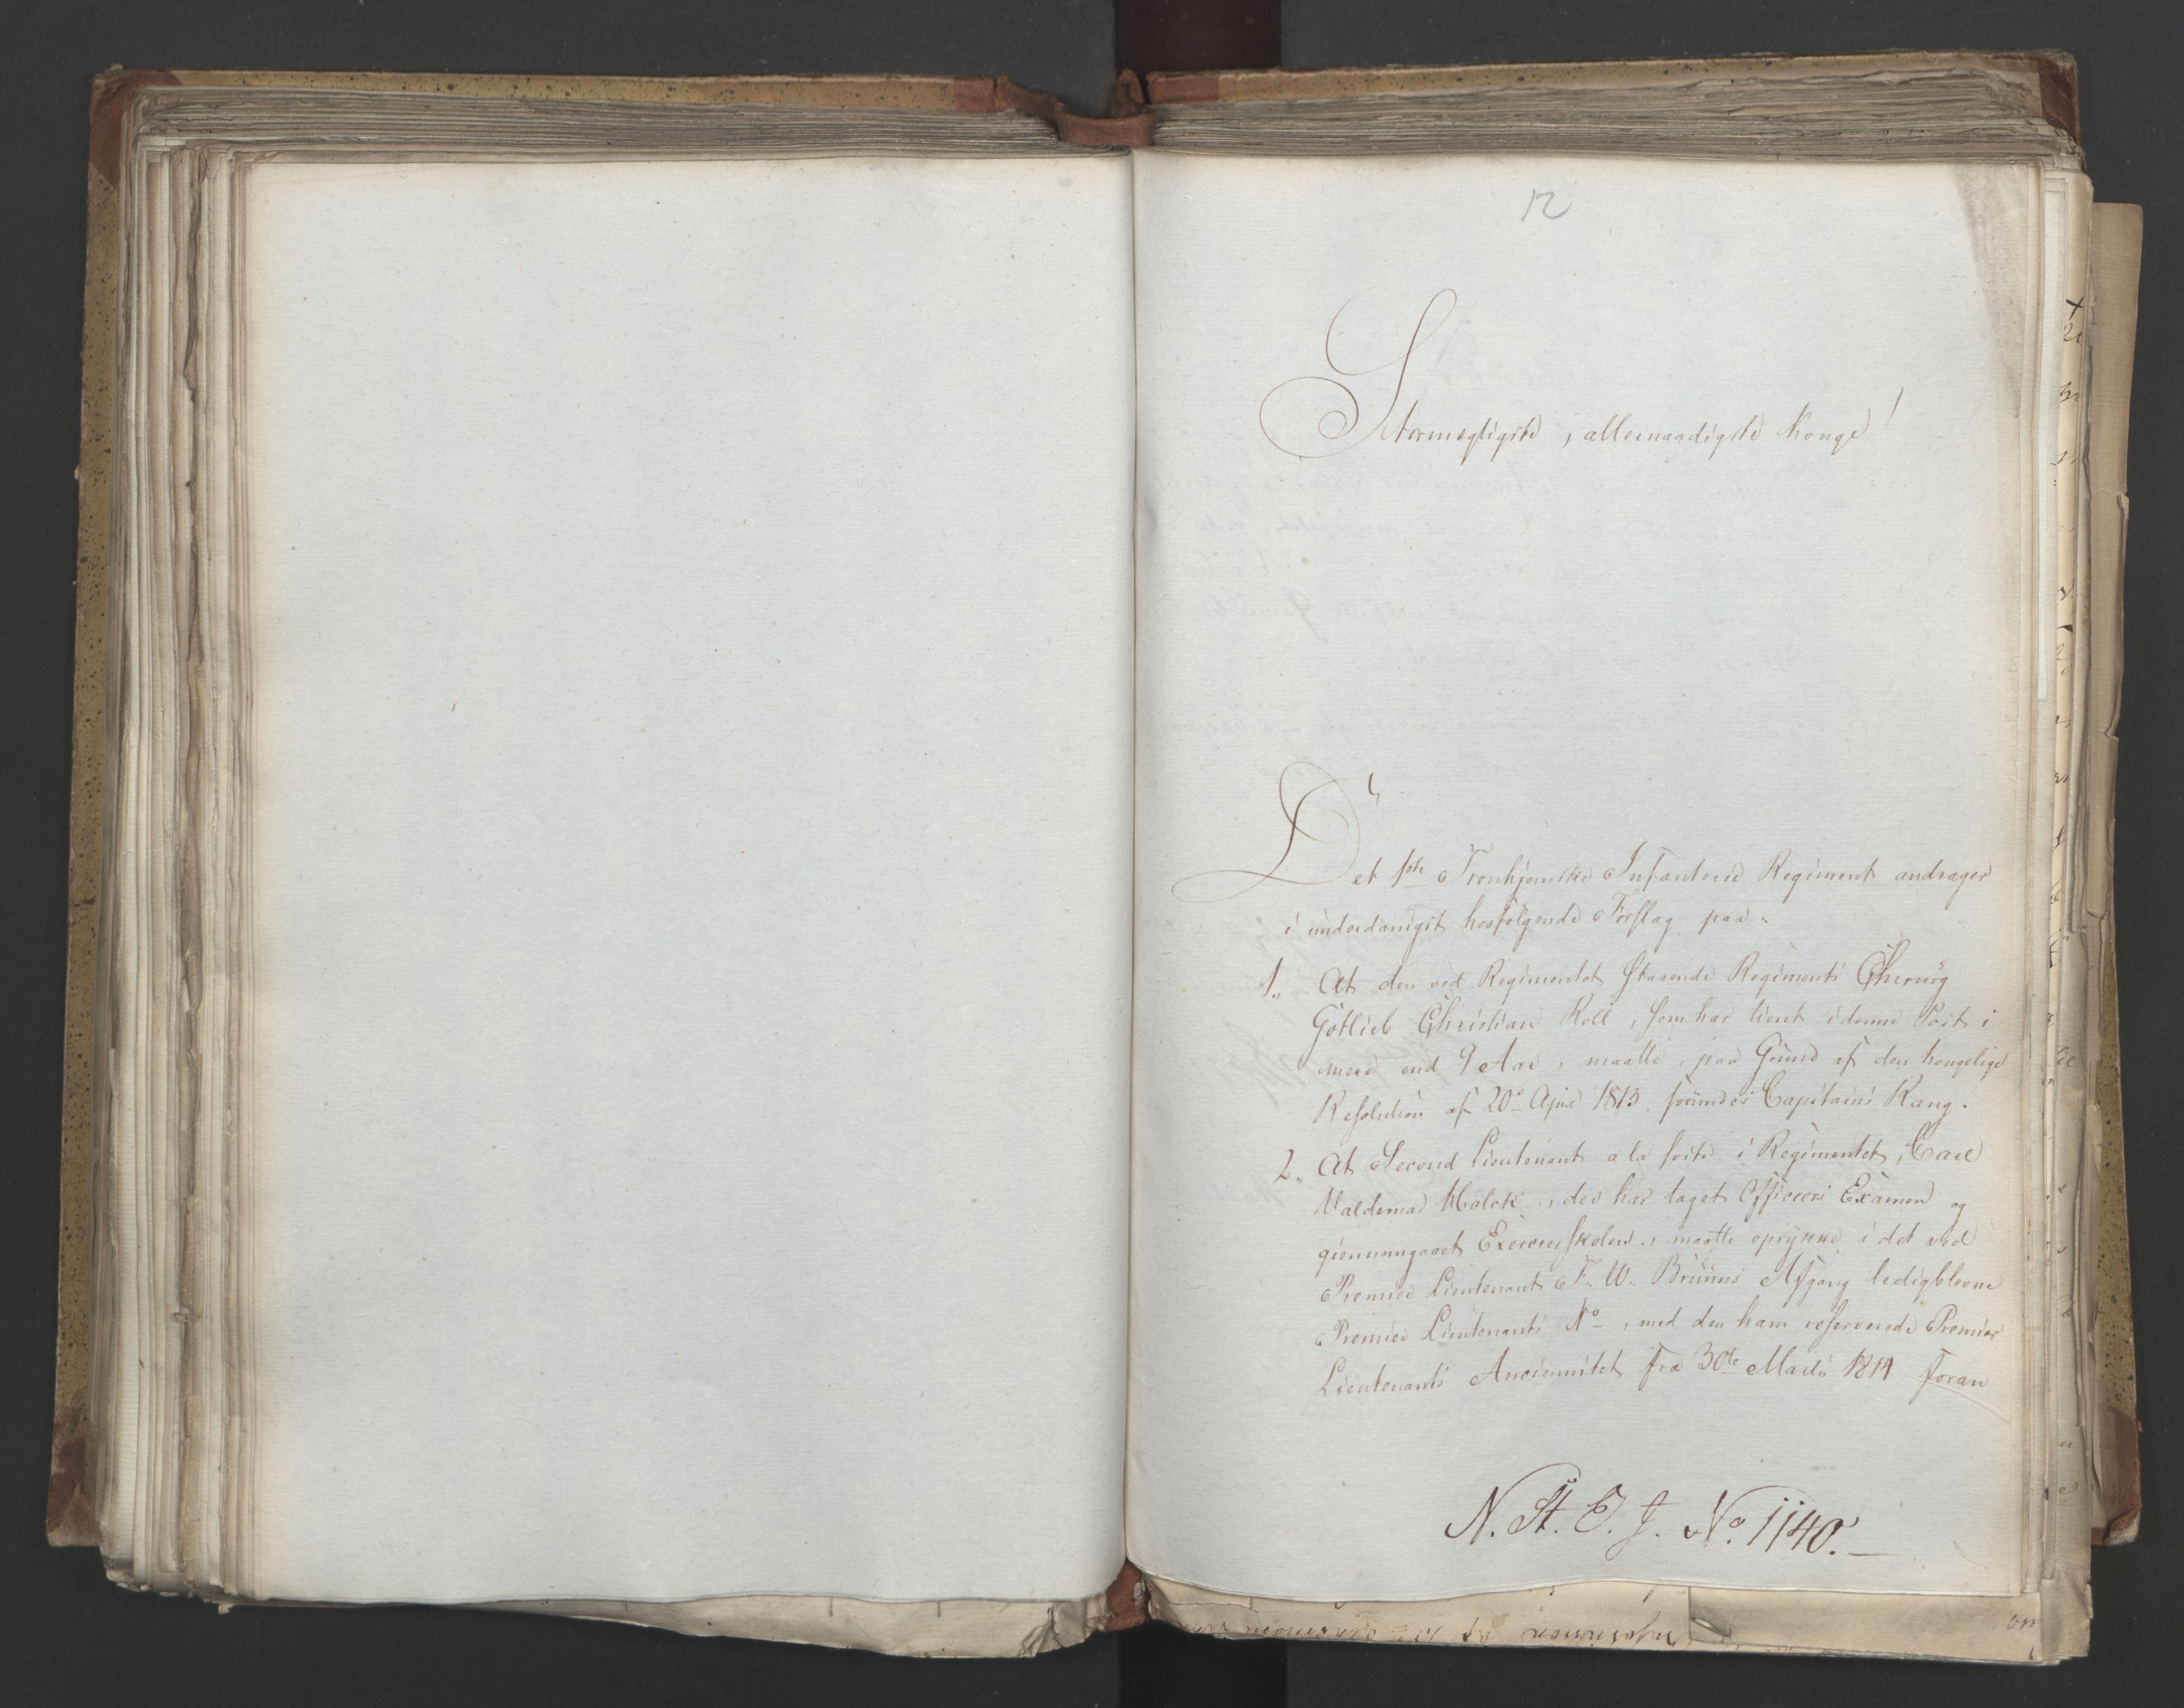 12
Stormægtigste, allernaadigste Konge!
Det 1ste Tronhjemske Infanterie Regiment andrager
i underdanigst hosfølgende Forslag paa:
1. At den ved Regimentet staaende Regiments Chirurg
Gotlieb Christian Roll, som har tient i denne Post i
mere end 9 Aar, maatte, paa Grund af den kongelige
Resolution af 20de April 1813, forundes Capitains Rang.
2. At Second Lieutenant a la suite i Regimentet, Carl
Valdemar Holck, der har taget Officers Examen og
giennemgaaet Exerceerskolen, maatte oprykke i det ved
Premier Lieutenant F. W. Brüüns Afgang ledigblevne
Premier Lieutenants No, med den ham reserverede Premier
Lieutenants Anciennitet fra 30te Martii 1814 foran
N. St. E. J. No. 1140.